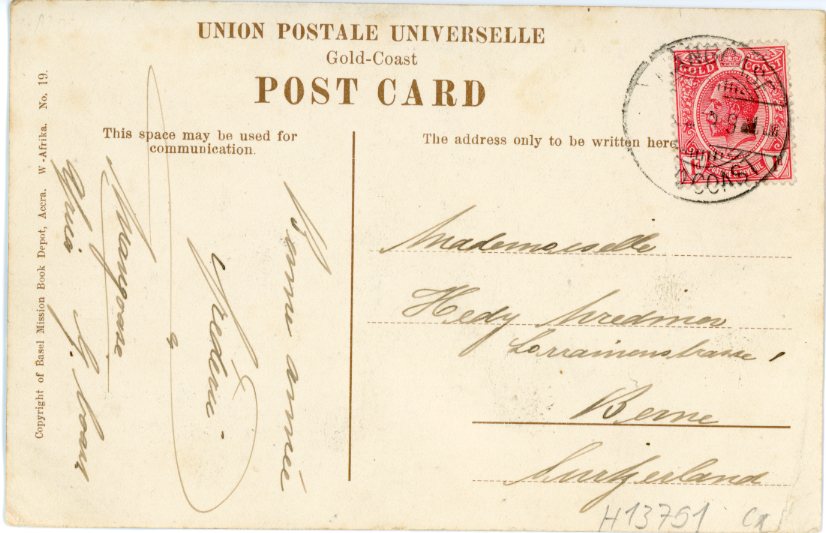 UNION POSTALE UNIVERSELLE
Gold-Coast
POST CARD
This space may be used for
communication.
The address only to be written here
GOLD COAST
COAST
Copyright of Basel Mission Book Depot, Accra. W.-Afrika. No. 19.
Bonne année
Mangoase
G. Coast
Mademoiselle
Hedy
Lorrainenstrasse,
Berne
Switzerland
H13751